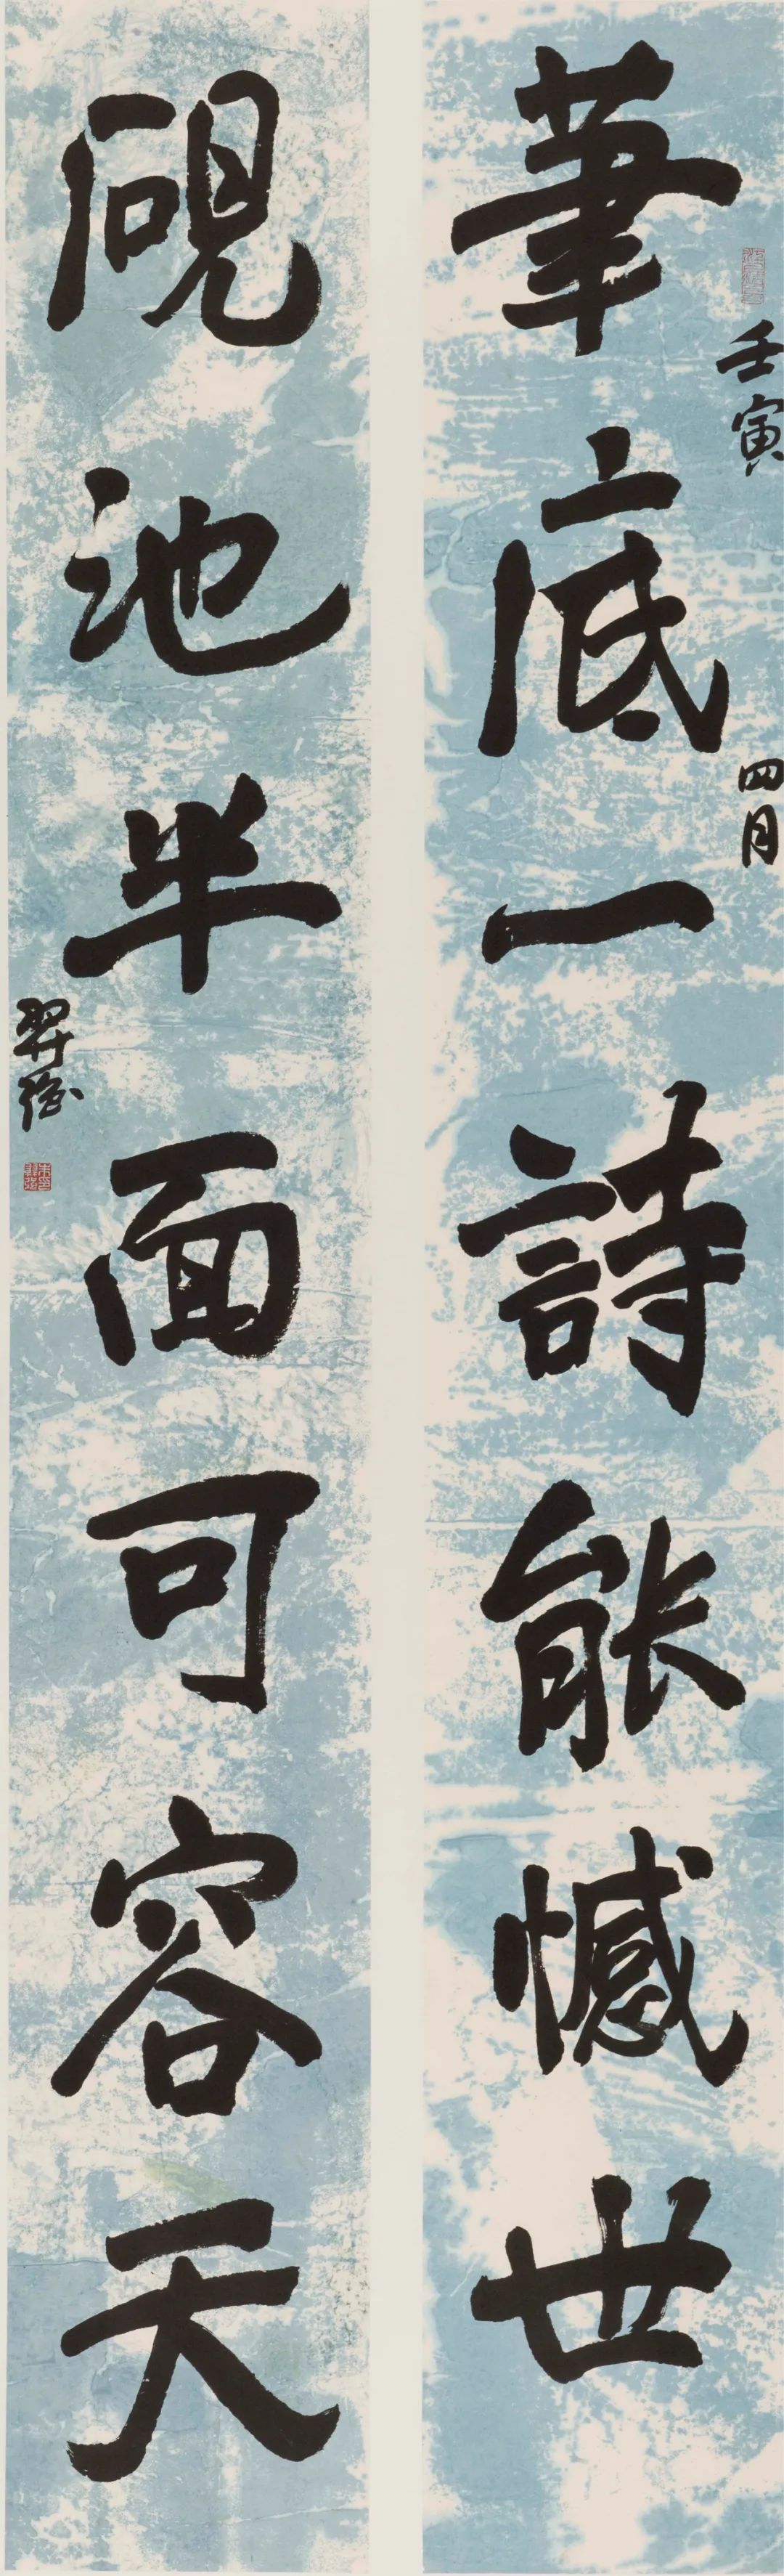 筆底一詩能憾世
壬寅
四月
硯池半面可容天
羿強